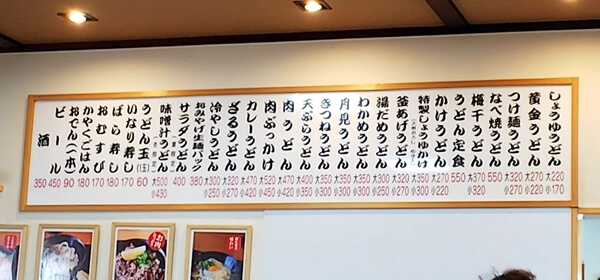 しょうゆうどん 大220 小170
黄金うどん 大270 小220
つけ麺うどん 大320 小270
なべ焼うどん 550
梅干うどん 大370 小320
うどん定食 550
かけうどん 大270 小220
特製しょうゆかけ
釜あげうどん 大350 小300
湯だめうどん 大300 小250
わかめうどん 大350 小300
月見うどん 大350 小300
きつねうどん 大350 小300
天ぷらうどん 大400 小350
肉うどん 大470 小420
肉ぶっかけ 大520 小470
カレーうどん 大470 小420
ざるうどん 大320 小270
冷やしうどん 大300 小250
おみやげ生麺パック 380
サラダうどん 400
味噌汁うどん 大500 小430
うどん玉(1玉) 60
いなり寿し 170
ばら寿し 180
おむすび 170
かやくごはん 180
おでん(一本) 90
ビール 450
酒 350